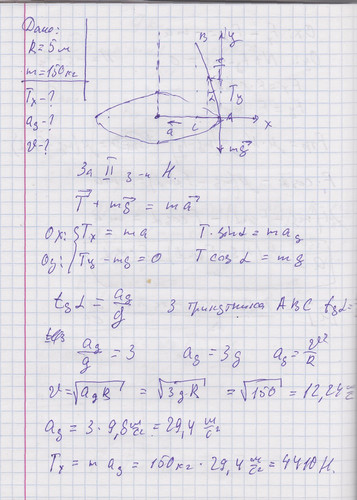 Дано:
R = 5 м
m = 150 кг
Tx - ?
aд - ?
v - ?
В
y
Ty
A
x
a
mg
За II з-н Н.
T + mg = ma
Ox: Tx = ma T·sin α = m aд
Oy: Ty - mg = 0 T cos α = mg
tg α = aд/g З трикутника ABC tg α =
aд/g = 3 aд = 3g aд = v²/R
v = √aд R = √3gR = √150 = 12,24 м/с
aд = 3 · 9,8 м/с² = 29,4 м/с²
Tx = m aд = 150 кг · 29,4 м/с² = 4410 Н.